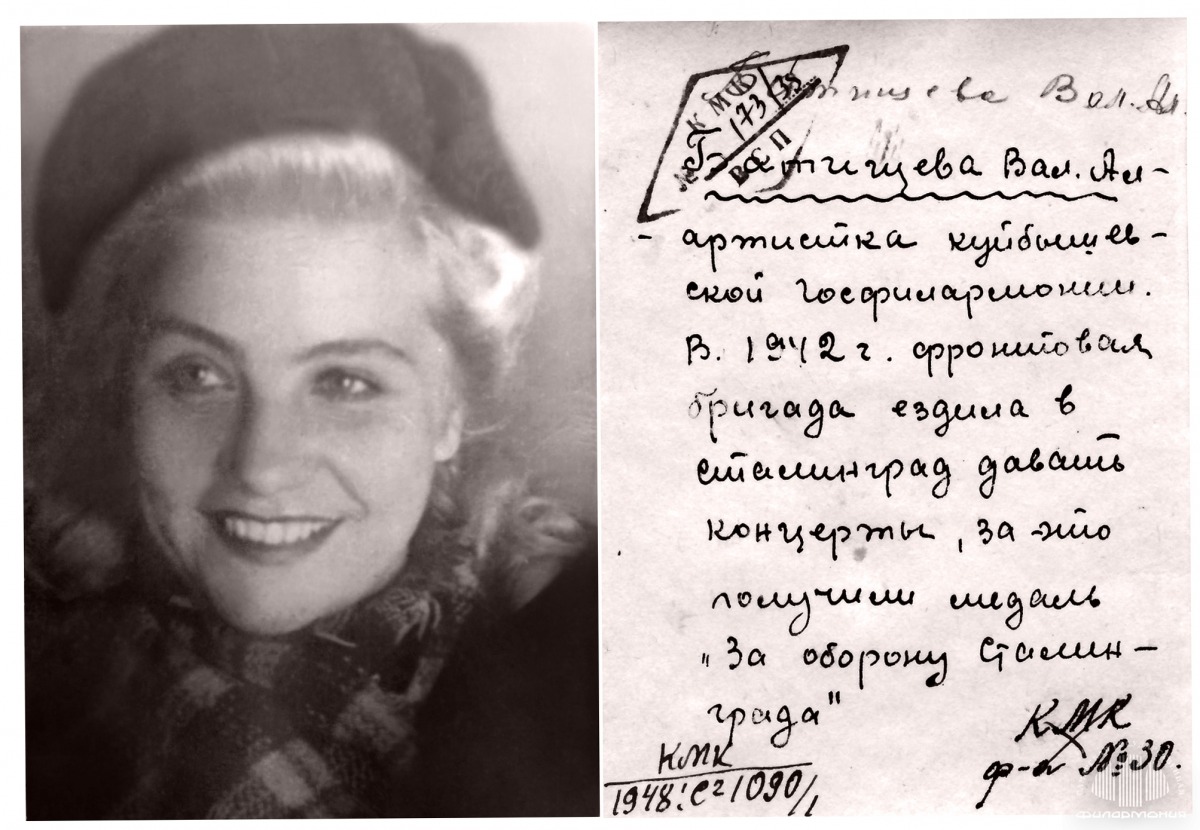 КМК
173 35
ВСП
тищева Вал. Ал.
Татищева Вал. Ал-
- артистка куйбышев-
ской госфилармонии.
В 1942 г. фронтовая
бригада ездила в
сталинград давать
концерты, за это
получили медаль
"За оборону Сталин-
града"
КМК
ф-д № 30.
КМК
1948: С2 1090/1
филармония